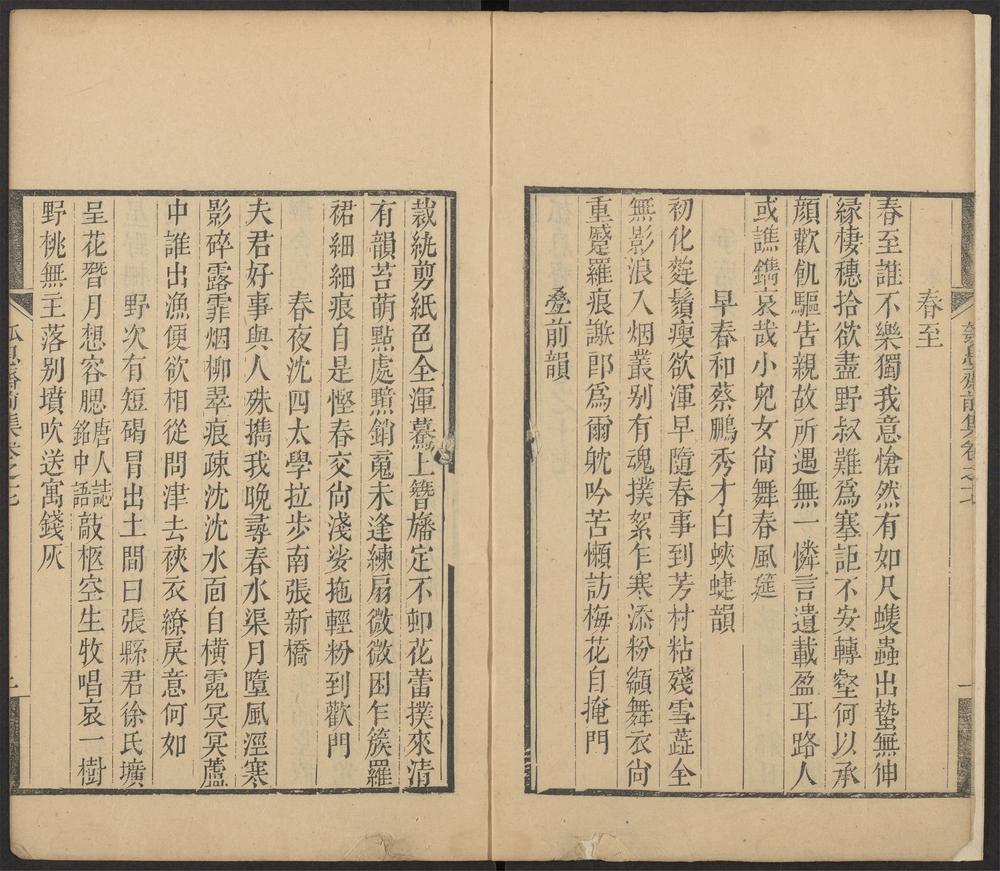 春至
春至誰不樂獨我意愴然有如尺蠖蟲出蟄無伸
緣棲穗拾欲盡野叔難爲搴詎不安轉壑何以承
顏歡飢驅告親故所遇無一憐言遺載盈耳路人
或譙鐫哀哉小兒女尙舞春風筵
早春和蔡鵬秀才白蛺蜨韻
初化㢟鬚瘦欲渾早隨春事到芳村粘殘雪蘂全
無影浪入烟叢别有魂撲絮乍寒添粉纈舞衣尙
重蹙羅痕謝郎爲爾躭吟苦懶訪梅花自掩門
疊前韻
裁紈剪紙色全渾驀上簪旛定不卸花蕾撲來清
有韻苔萌點處黯銷䰟未逢練扇微微困乍簇羅
裙細細痕自是慳春交尙淺娑拖輕粉到歡門
春夜沈四太學拉步南張新橋
夫君好事與人殊攜我晚尋春水渠月墮風涇寒
影碎露霏烟柳翠痕疎沈沈水面自橫霓冥冥蘆
中誰出漁便欲相從問津去裌衣繚戾意何如
野次有短碣冒出土間曰張縣君徐氏壙
呈花㬱月想容腮唐人誌銘中語敲柩空生牧唱哀一樹
野桃無主落别墳吹送寓錢灰